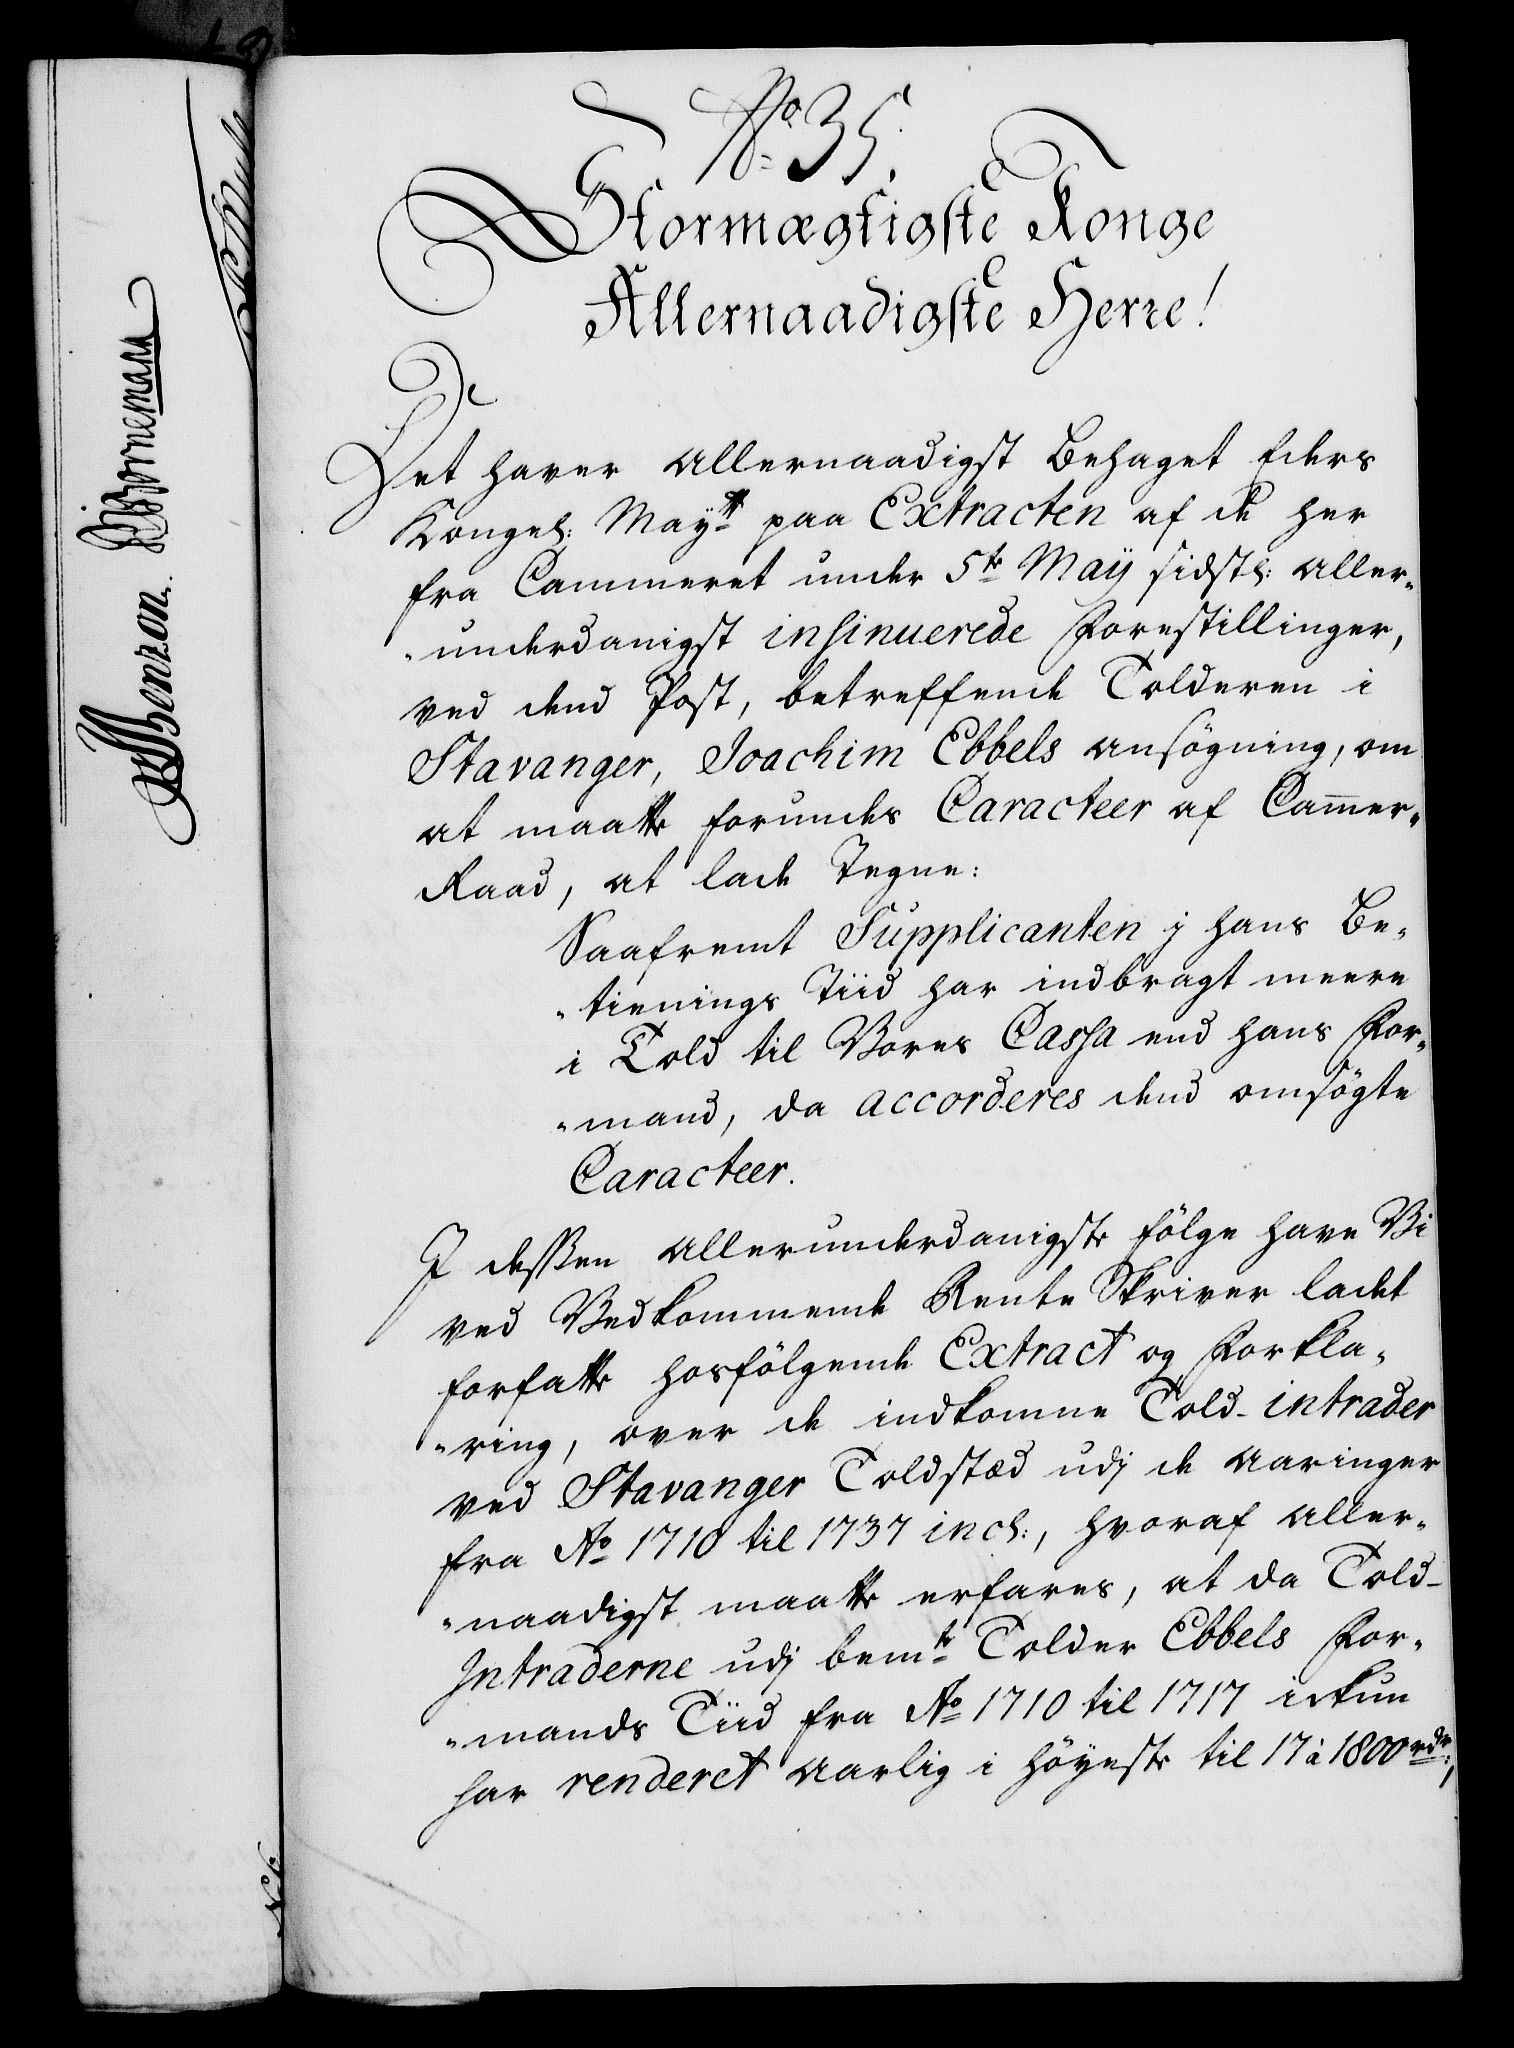 No 35.
Stormægtigste Konge
Allernaadigste Herre!
Det haver allernaadigst behaget Eders
Kongel: Mayts paa Extracten af de her
fra Cammeret under 5te Maÿ sidstl: aller-
-underdanigst insinuerede Forestillinger,
ved dend Post, betreffende Tolderen i
Stavanger, Joachim Ebbels ansögning, om
at maatte forundes Caracteer af Cam̅er-
Raad, at lade Tegne:
Saafremt Supplicanten j hans Be-
-tienings Tiid har indbragt meere
i Told til Vores Cassa end hans For-
-mand, da accorderes dend omsögte
Caracteer.
I dessen allerunderdanigste fölge have Vi
ved Vedkommende Rente Skriver ladet
forfatte hosfölgende Extract og Forkla-
-ring, over de indkomne Told-intrader
ved Stavanger Toldstæd udj de Aaringer
fra Ao 1710 til 1737 incl:, hvoraf aller-
-naadigst maatte erfares, at da Told-
Intraderne udj bemte Tolder Ebbels For-
-mands Tiid fra Ao 1710 til 1717 ickun
har renderet aarlig i höyeste til 17 à 1800 rdr:,
Benzon.
Bornemann